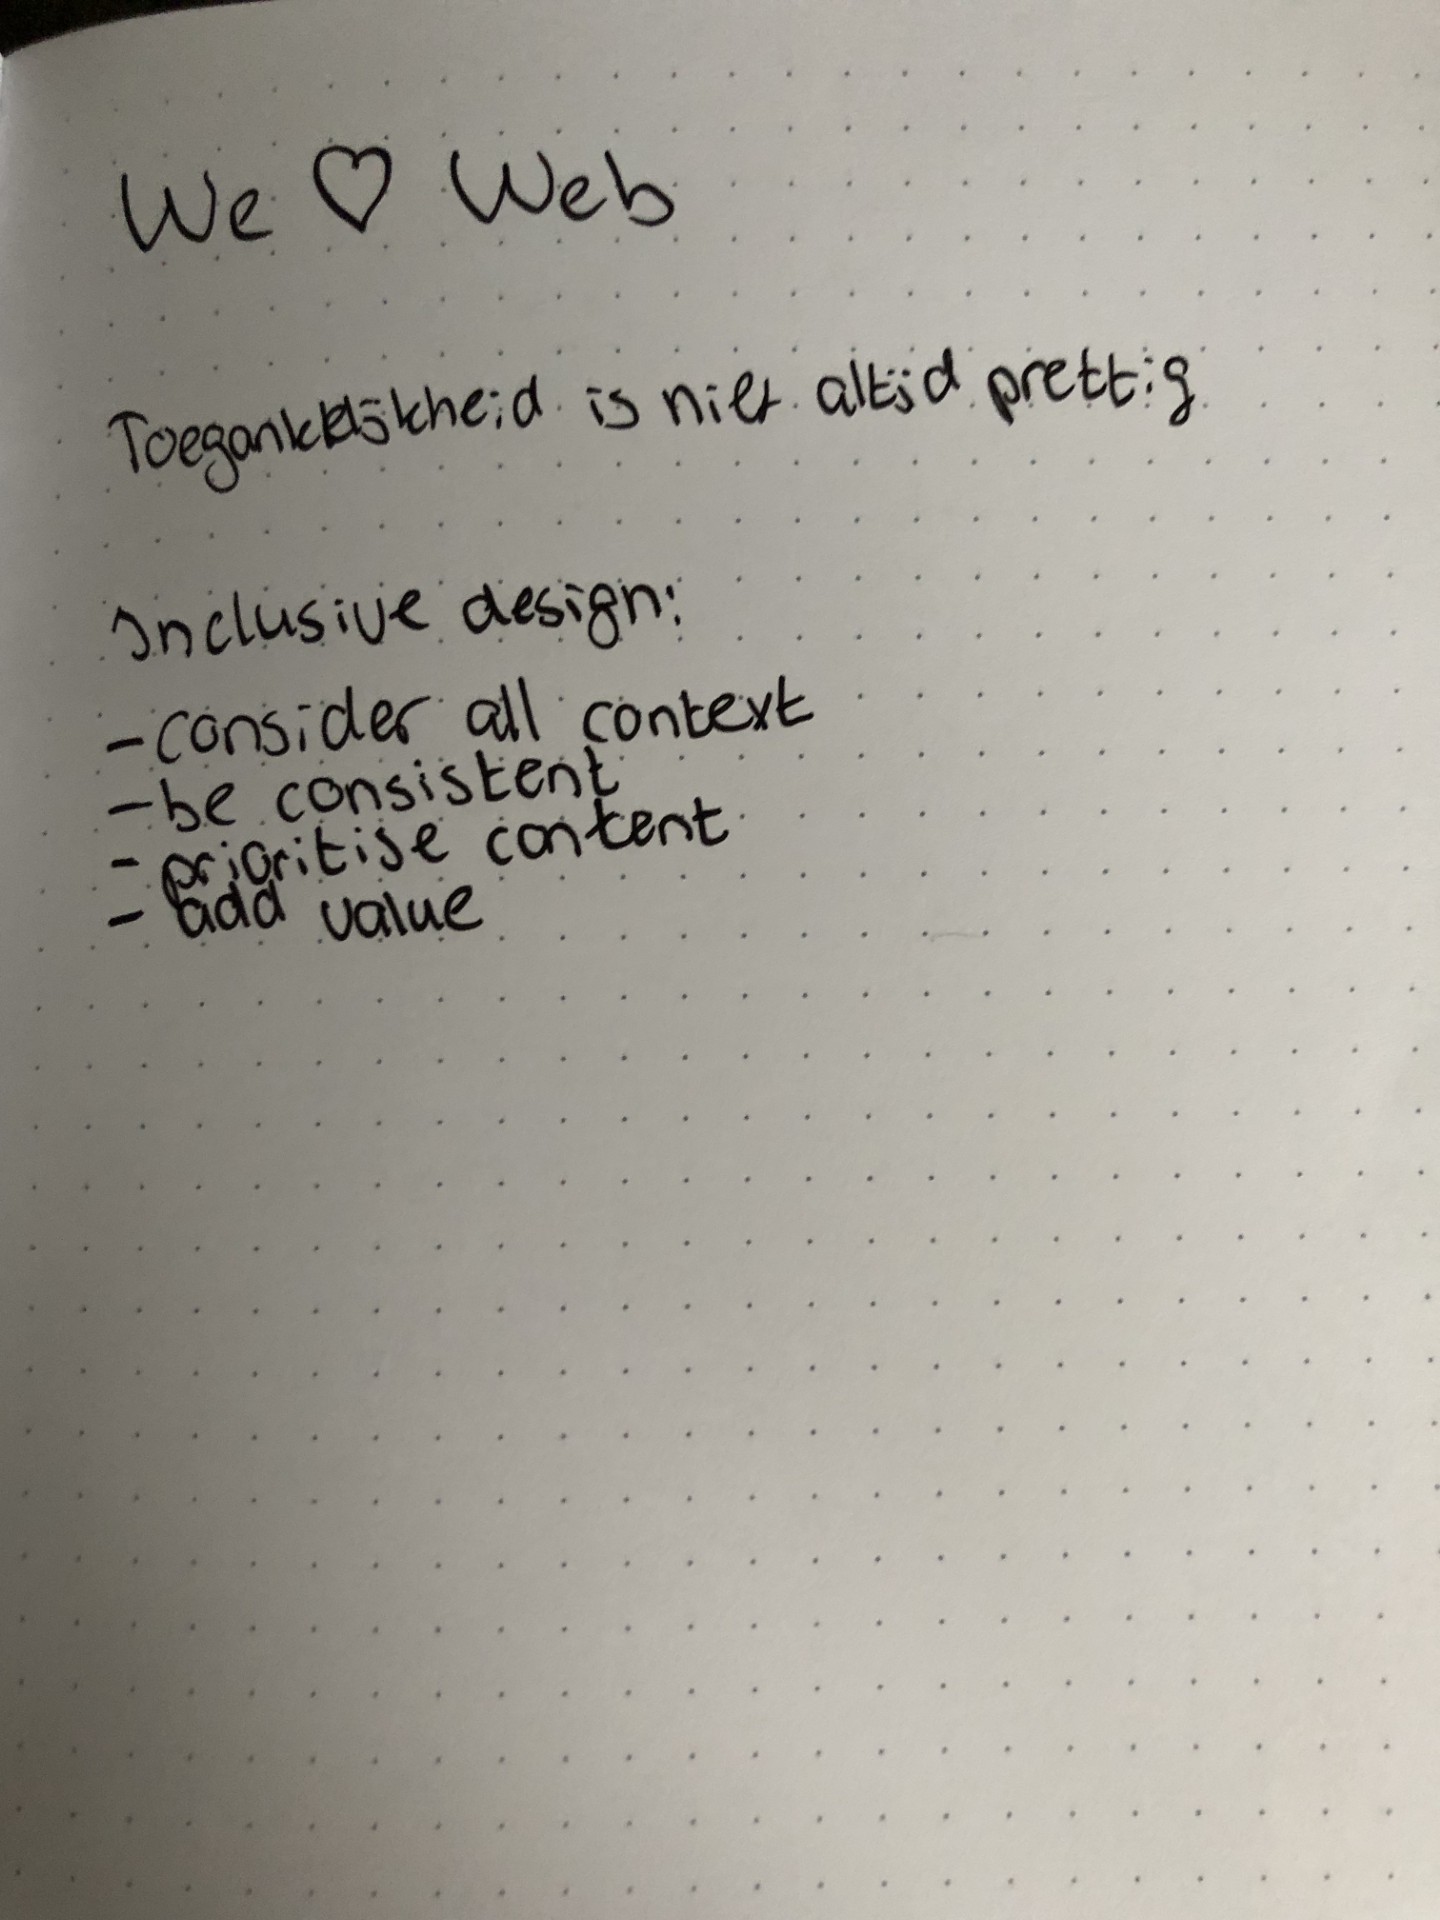 We ♡ Web
Toegankelijkheid is niet altijd prettig
Inclusive design:
- consider all context
- be consistent
- prioritise content
- add value